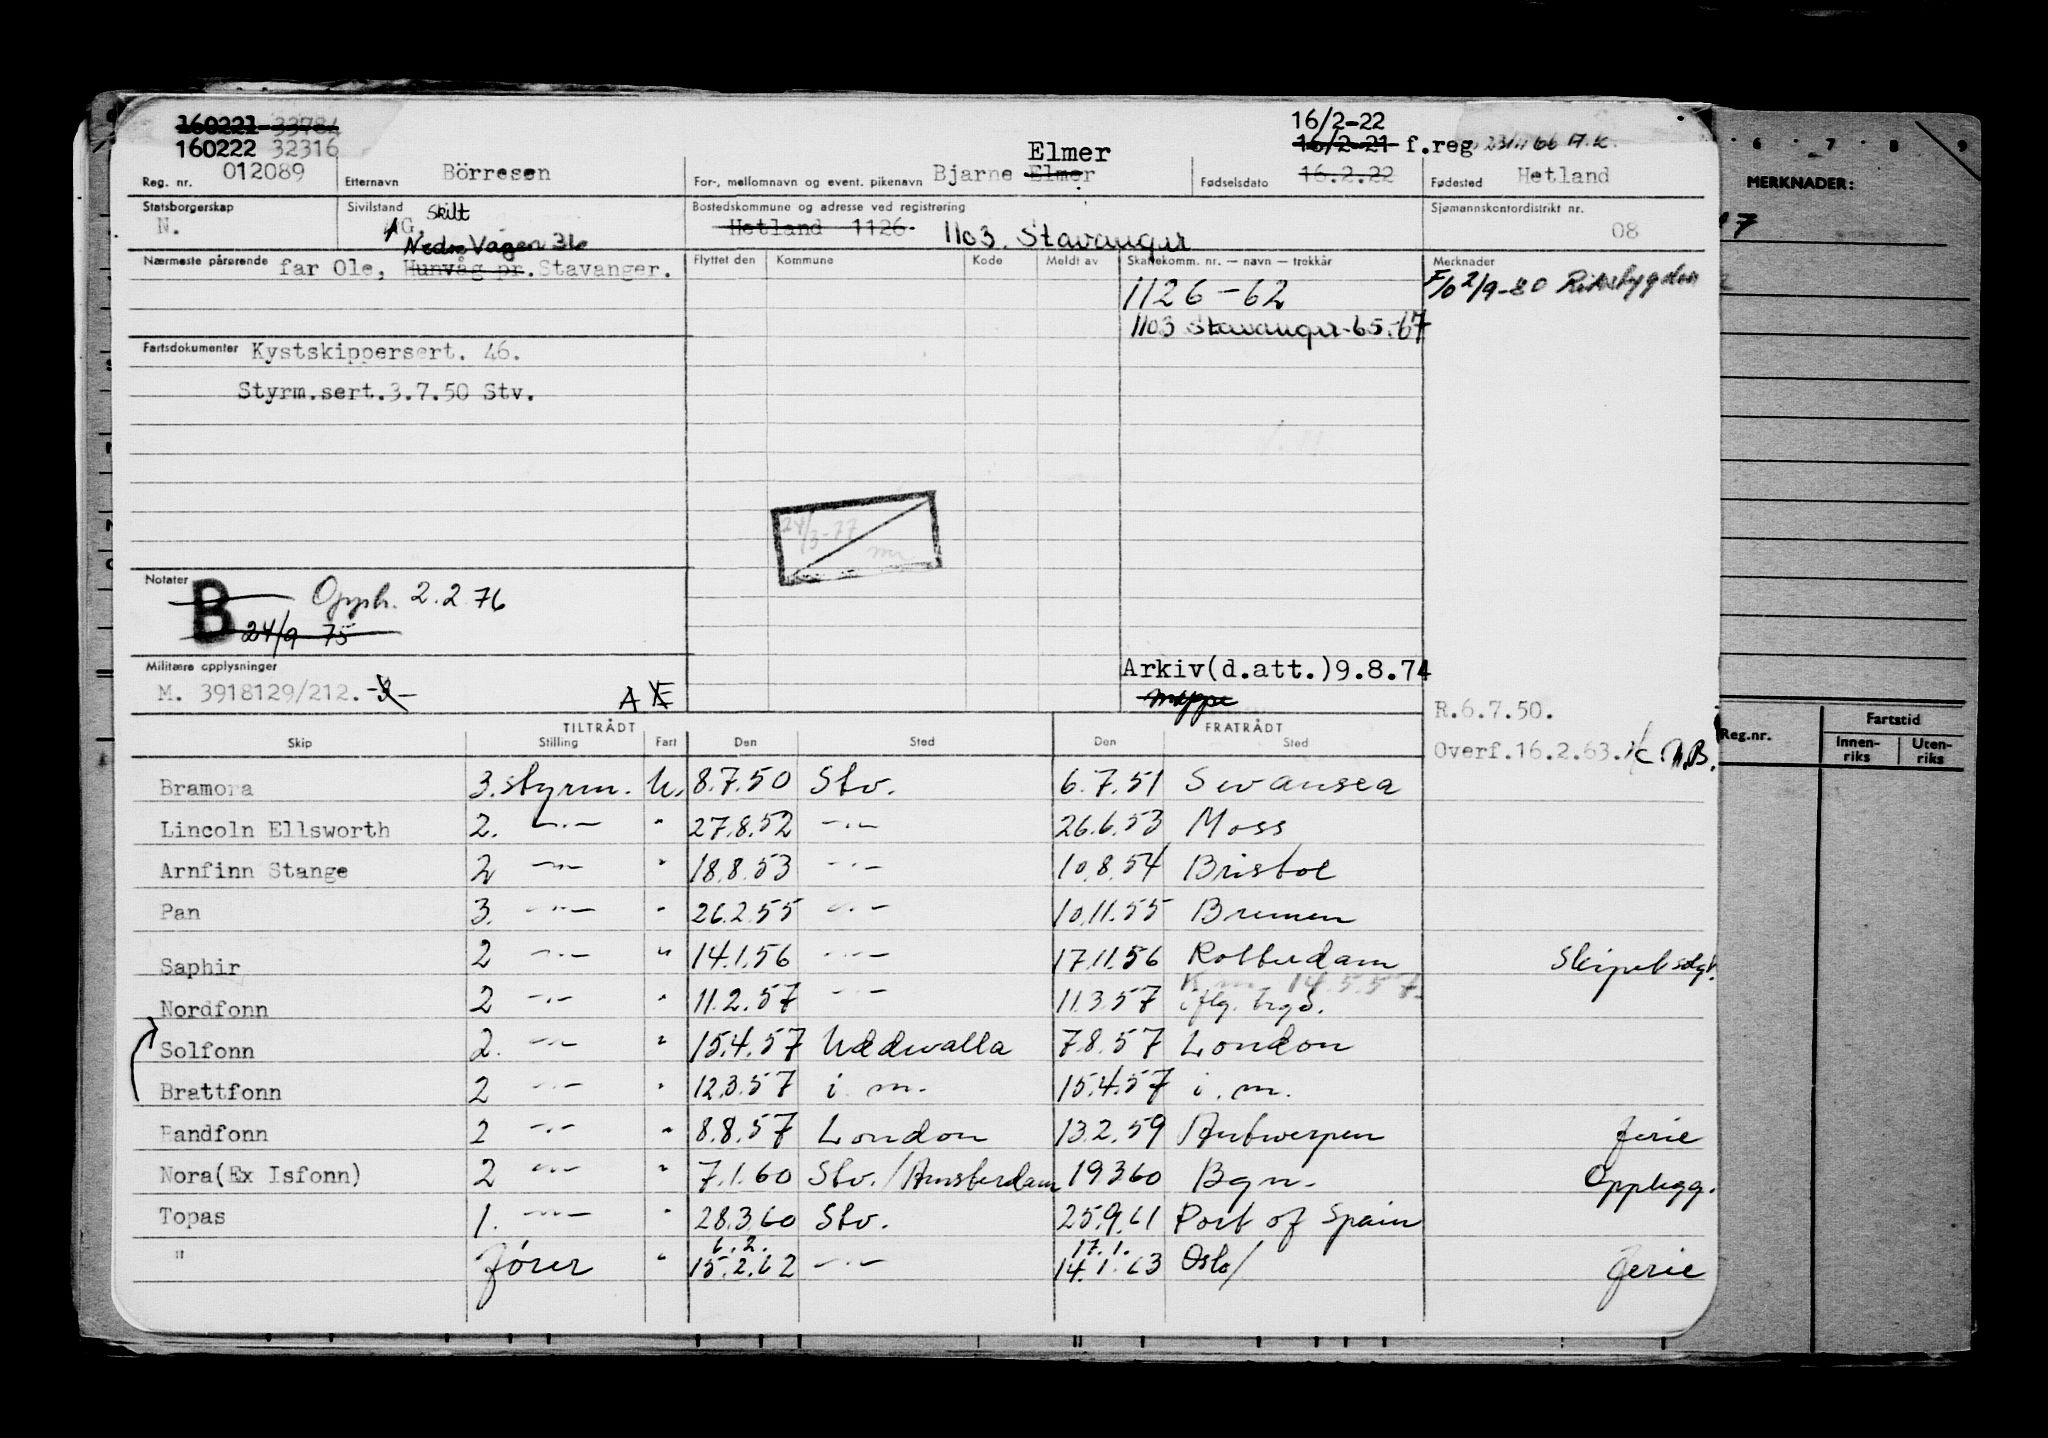 160221 33784
160222 32316
16/2-22
16/2-21 f.reg 23/11 66 A.K.
Elmer
Reg. nr. 012089 Etternavn Börresen For-, mellomnavn og event. pikenavn Bjarne Elmer Fødselsdato 16.2.22 Fødested Hetland
6 7 8 9
MERKNADER:
Statsborgerskap N. Sivilstand G. Skilt Bostedskommune og adresse ved registrering Hetland 1126 1103. Stavanger Sjømannskontordistrikt nr. 08
Nedre Vågen 36
Nærmeste pårørende far Ole, Hunvåg pr. Stavanger.
Flyttet den Kommune Kode Meldt av Skattekomm. nr. — navn — trekkår Merknader
1126-62 F/o 2/9-80
1103 Stavanger-65-67
Fartsdokumenter Kystskippersert. 46.
Styrm.sert.3.7.50 Stv.
24/3-77
Notater B Opph. 2.2.76
24/9 75
Militære opplysninger
M. 3918129/212.-3- A E
Arkiv(d.att.)9.8.74
mappe
R.6.7.50.
Overf.16.2.63.
TILTRÅDT FRATRÅDT
Skip Stilling Fart Den Sted Den Sted
Reg.nr. Fartstid
Innen-riks Uten-riks
Bramora 3.styrm. U. 8.7.50 Stv. 6.7.51 Swansea
Lincoln Ellsworth 2. -"- " 27.8.52 -"- 26.6.53 Moss
Arnfinn Stange 2 -"- " 18.8.53 -"- 10.8.54 Bristol
Pan 3. -"- " 26.2.55 -"- 10.11.55 Bremen
Saphir 2 -"- " 14.1.56 -"- 17.11.56 Rotterdam Skipet solgt.
14.5.57.
Nordfonn 2 -"- " 11.2.57 -"- 11.3.57
Solfonn 2. -"- " 15.4.57 Uddevalla 7.8.57 London
Brattfonn 2 -"- " 12.3.57 i. m. 15.4.57 i. m.
Randfonn 2 -"- " 8.8.57 London 13.2.59 Antwerpen ferie
Nora(Ex Isfonn) 2 -"- " 7.1.60 Stv./Amsterdam 19360 Bgn. Opplegg.
Topas 1. -"- " 28.3.60 Stv. 25.9.61 Port of Spain
6.2. 17.1.
" fører " 15.2.62 -"- 14.1.63 Oslo/ ferie